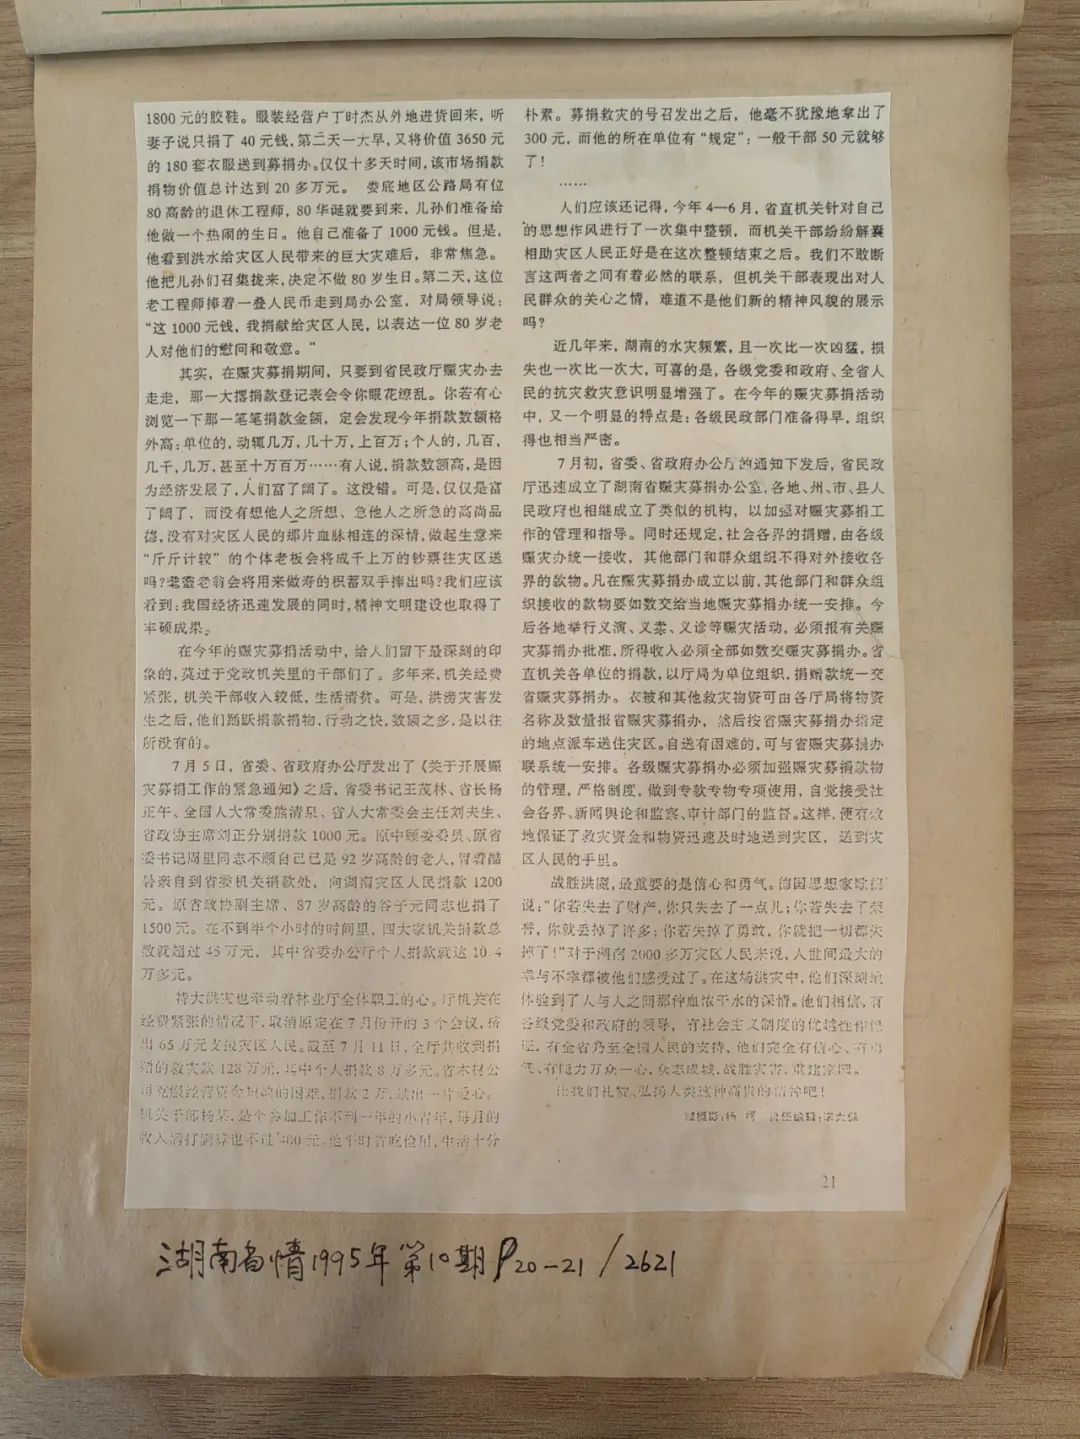 1800元的胶鞋。服装经营户丁时杰从外地进货回来，听
妻子说只捐了40元钱，第二天一大早，又将价值3650元
的180套衣服送到募捐办。仅仅十多天时间，该市场捐款
捐物价值总计达到20多万元。 娄底地区公路局有位
80高龄的退休工程师，80华诞就要到来，儿孙们准备给
他做一个热闹的生日。他自己准备了1000元钱。但是，
他看到洪水给灾区人民带来的巨大灾难后，非常焦急。
他把儿孙们召集拢来，决定不做80岁生日。第二天，这位
老工程师捧着一叠人民币走到局办公室，对局领导说：
“这1000元钱，我捐献给灾区人民，以表达一位80岁老
人对他们的慰问和敬意。”
其实，在赈灾募捐期间，只要到省民政厅赈灾办去
走走，那一大摞捐款登记表会令你眼花缭乱。你若有心
浏览一下那一笔笔捐款金额，定会发现今年捐款数额格
外高：单位的，动辄几万，几十万，上百万；个人的，几百，
几千，几万，甚至十万百万……有人说，捐款数额高，是因
为经济发展了，人们富了阔了。这没错。可是，仅仅是富
了阔了，而没有想他人之所想、急他人之所急的高尚品
德，没有对灾区人民的那片血脉相连的深情，做起生意来
“斤斤计较”的个体老板会将成千上万的钞票往灾区送
吗？耄耋老翁会将用来做寿的积蓄双手捧出吗？我们应该
看到：我国经济迅速发展的同时，精神文明建设也取得了
丰硕成果。
在今年的赈灾募捐活动中，给人们留下最深刻的印
象的，莫过于党政机关里的干部们了。多年来，机关经费
紧张，机关干部收入较低，生活清贫。可是，洪涝灾害发
生之后，他们踊跃捐款捐物，行动之快，数额之多，是以往
所没有的。
7月5日，省委、省政府办公厅发出了《关于开展赈
灾募捐工作的紧急通知》之后，省委书记王茂林、省长杨
正午、全国人大常委熊清泉、省人大常委会主任刘夫生、
省政协主席刘正分别捐款1000元。原中顾委委员、原省
委书记周里同志不顾自己已是92岁高龄的老人，冒着酷
暑亲自到省委机关捐款处，向湖南灾区人民捐款1200
元。原省政协副主席、87岁高龄的谷子元同志也捐了
1500元。在不到半个小时的时间里，四大家机关捐款总
数就超过45万元，其中省委办公厅个人捐款就达10.4
万多元。
特大洪灾也牵动着林业厅全体职工的心。厅机关在
经费紧张的情况下，取消原定在7月份开的3个会议，挤
出65万元支援灾区人民。截至7月11日，全厅共收到捐
赠的救灾款128万元，其中个人捐款8万多元。省木材公
司克服经营资金短缺的困难，捐款2万，献出一片爱心。
机关干部杨某，是个参加工作不到一年的小青年，每月的
收入满打满算也不过400元，他平时省吃俭用，生活十分
朴素。募捐救灾的号召发出之后，他毫不犹豫地拿出了
300元，而他的所在单位有“规定”：一般干部50元就够
了！
……
人们应该还记得，今年4—6月，省直机关针对自己
的思想作风进行了一次集中整顿，而机关干部纷纷解囊
相助灾区人民正好是在这次整顿结束之后。我们不敢断
言这两者之间有着必然的联系，但机关干部表现出对人
民群众的关心之情，难道不是他们新的精神风貌的展示
吗？
近几年来，湖南的水灾频繁，且一次比一次凶猛，损
失也一次比一次大，可喜的是，各级党委和政府、全省人
民的抗灾救灾意识明显增强了。在今年的赈灾募捐活动
中，又一个明显的特点是：各级民政部门准备得早，组织
得也相当严密。
7月初，省委、省政府办公厅的通知下发后，省民政
厅迅速成立了湖南省赈灾募捐办公室，各地、州、市、县人
民政府也相继成立了类似的机构，以加强对赈灾募捐工
作的管理和指导。同时还规定，社会各界的捐赠，由各级
赈灾办统一接收，其他部门和群众组织不得对外接收各
界的款物。凡在赈灾募捐办成立以前，其他部门和群众组
织接收的款物要如数交给当地赈灾募捐办统一安排。今
后各地举行义演、义卖、义诊等赈灾活动，必须报有关赈
灾募捐办批准，所得收入必须全部如数交赈灾募捐办。省
直机关各单位的捐款，以厅局为单位组织，捐赠款统一交
省赈灾募捐办。衣被和其他救灾物资可由各厅局将物资
名称及数量报省赈灾募捐办，然后按省赈灾募捐办指定
的地点派车送往灾区。自送有困难的，可与省赈灾募捐办
联系统一安排。各级赈灾募捐办必须加强赈灾募捐款物
的管理，严格制度，做到专款专物专项使用，自觉接受社
会各界、新闻舆论和监察、审计部门的监督。这样，便有效
地保证了救灾资金和物资迅速及时地送到灾区，送到灾
区人民的手里。
战胜洪魔，最重要的是信心和勇气。德国思想家歌德
说：“你若失去了财产，你只失去了一点儿；你若失去了荣
誉，你就丢掉了许多；你若失掉了勇敢，你就把一切都失
掉了！”对于湖南2000多万灾区人民来说，人世间最大的
幸与不幸都被他们感受过了。在这场洪灾中，他们深刻地
体验到了人与人之间那种血浓于水的深情。他们相信，有
各级党委和政府的领导，有社会主义制度的优越性作保
证，有全省乃至全国人民的支持，他们完全有信心、有勇
气、有能力万众一心，众志成城，战胜灾害，重建家园。
让我们礼赞、弘扬人类这种高贵的精神吧！
责任编辑：
21
湖南省情1995年第10期P20-21/2621